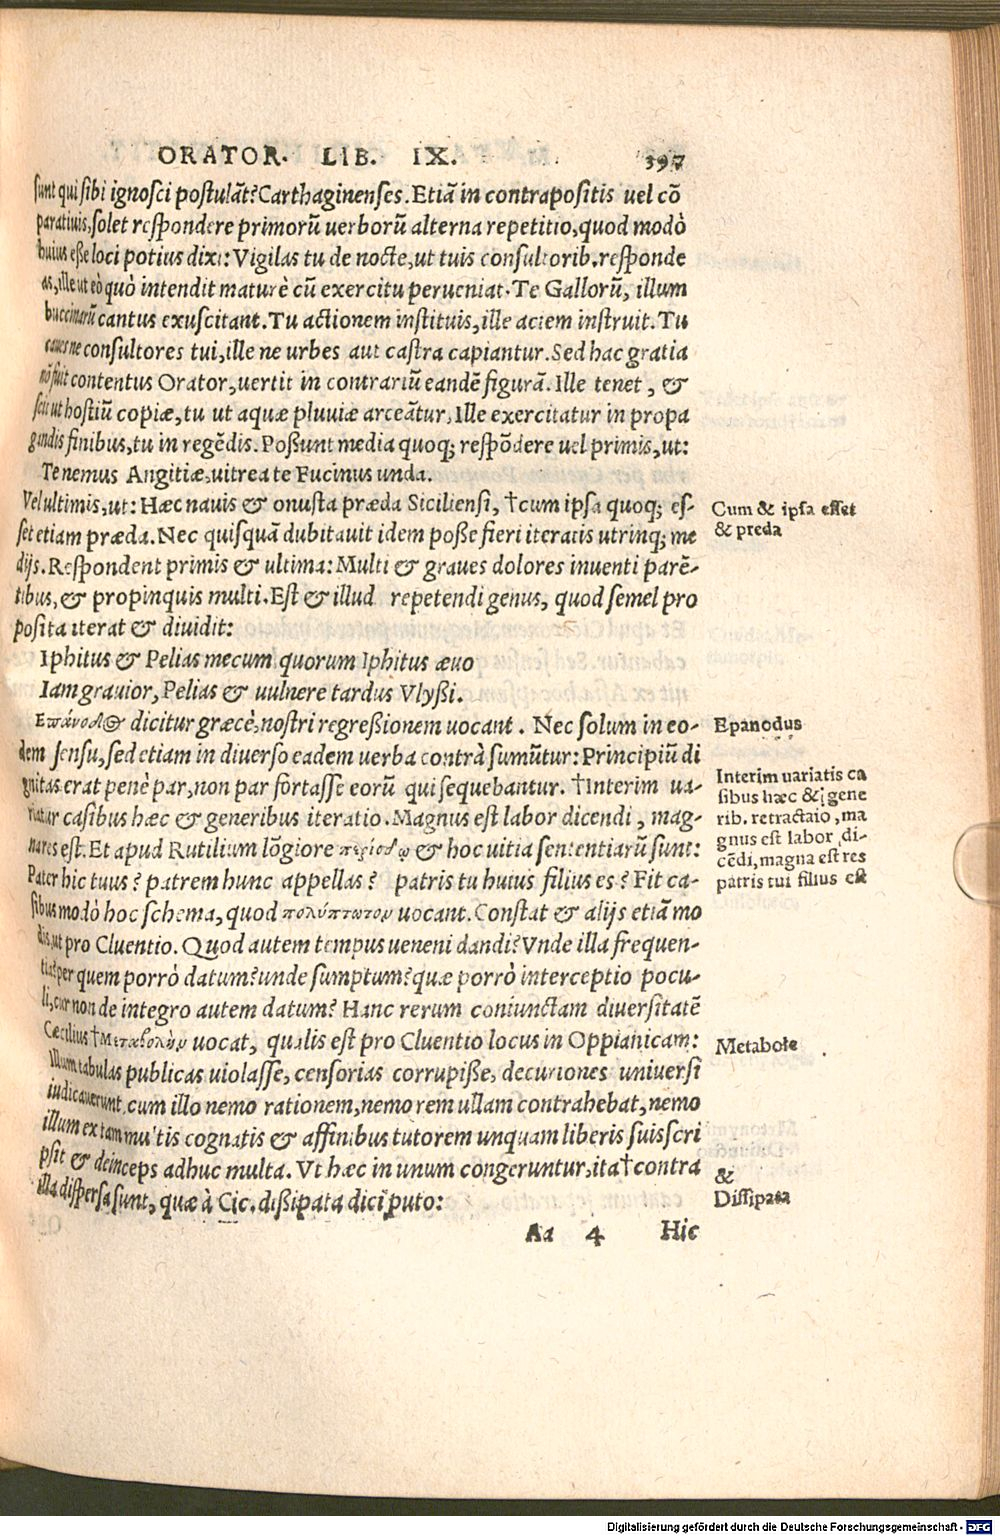 ORATOR. LIB. IX. 397
sunt qui sibi ignosci postulāt? Carthaginenses. Etiā in contrapositis uel cō
paratiuis, solet respondere primorū uerborū alterna repetitio, quod modò
huius esse loci potius dixi: Vigilas tu de nocte, ut tuis consultorib. responde
as, ille ut eò quò intendit maturè cū exercitu perueniat. Te Gallorū, illum
buccinarū cantus exuscitant. Tu actionem instituis, ille aciem instruit. Tu
caues ne consultores tui, ille ne urbes aut castra capiantur. Sed hac gratia
nō fuit contentus Orator, uertit in contrariū eandē figurā. Ille tenet, &
scit ut hostiū copiæ, tu ut aquæ pluuiæ arceātur, Ille exercitatur in propa
gandis finibus, tu in regēdis. Possunt media quoq; respōdere uel primis, ut:
Te nemus Angitiæ, uitrea te Fucinus unda.
Vel ultimis, ut: Hæc nauis & onusta præda Siciliensi, †cum ipsa quoq; es-
set etiam præda. Nec quisquā dubitauit idem posse fieri iteratis utrinq; me
dijs. Respondent primis & ultima: Multi & graues dolores inuenti parē-
tibus, & propinquis multi. Est & illud repetendi genus, quod semel pro
posita iterat & diuidit:
Iphitus & Pelias mecum quorum Iphitus æuo
Iam grauior, Pelias & uulnere tardus Vlyssi.
Επάνοδος dicitur græcè, nostri regressionem uocant. Nec solum in eo-
dem sensu, sed etiam in diuerso eadem uerba contrà sumūtur: Principiū di
gnitas erat penè par, non par fortasse eorū qui sequebantur. †Interim ua-
riatur casibus hæc & generibus iteratio. Magnus est labor dicendi, mag-
na res est. Et apud Rutilium lōgiore περιόδῳ & hoc uitia sententiarū sunt:
Pater hic tuus? patrem hunc appellas? patris tu huius filius es? Fit ca-
sibus modò hoc schema, quod πολύπτωτον uocant. Constat & alijs etiā mo
dis, ut pro Cluentio. Quod autem tempus ueneni dandi? Vnde illa frequen-
tia? per quem porrò datum? unde sumptum? quæ porrò interceptio pocu-
li, cur non de integro autem datum? Hanc rerum coniunctam diuersitatē
Cæcilius †Μεταβολὴν uocat, qualis est pro Cluentio locus in Oppianicam:
Illum tabulas publicas uiolasse, censorias corrupisse, decuriones uniuersi
iudicauerunt, cum illo nemo rationem, nemo rem ullam contrahebat, nemo
illum ex tam multis cognatis & affinibus tutorem unquam liberis suis scri
psit & deinceps adhuc multa. Vt hæc in unum congeruntur, ita †contra
illa dispersa sunt, quæ à Cic. dissipata dici puto:
Aa 4 Hic
Cum & ipsa esset
& preda
Epanodus
Interim uariatis ca
sibus hæc & gene
rib. retractaio, ma
gnus est labor di-
cēdi, magna est res
patris tui filius est
Metabole
&
Dissipata
Digitalisierung gefördert durch die Deutsche Forschungsgemeinschaft - DFG